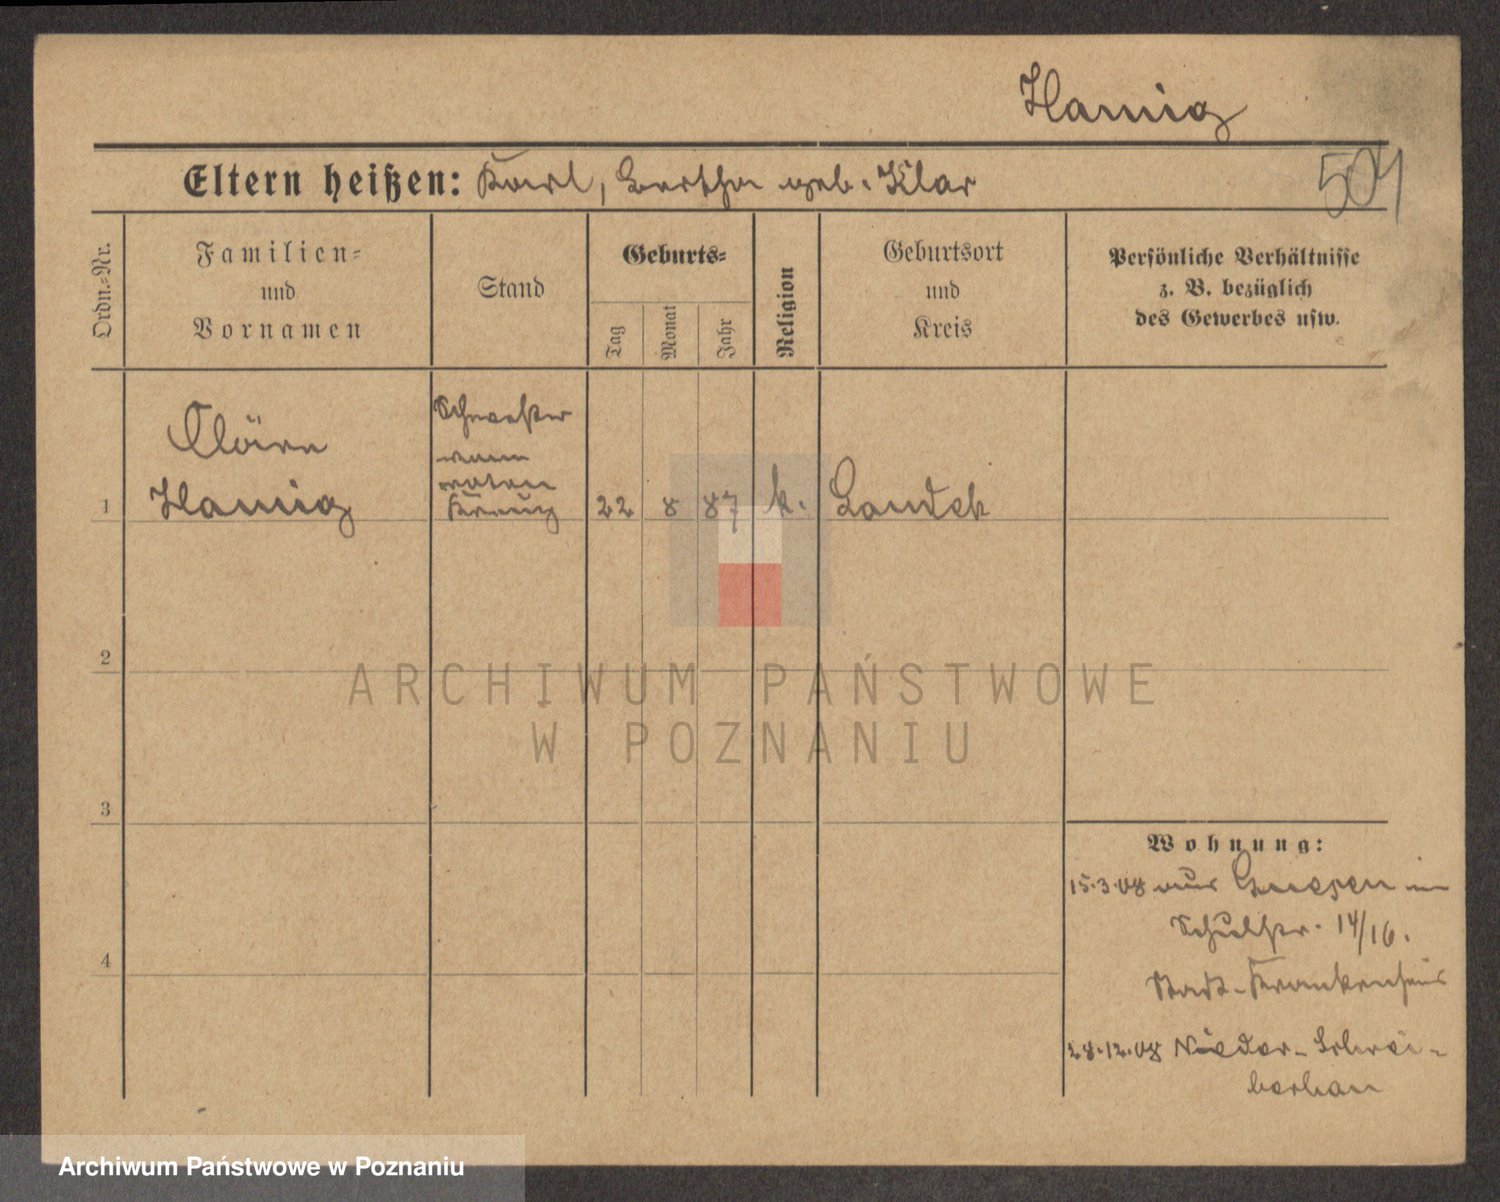 Hamig
Eltern heißen: Karl, Bertha geb. Klar
504
Ordn.-Nr.
Familien-
und
Vornamen
Stand
Geburts-
Tag
Monat
Jahr
Religion
Geburtsort
und
Kreis
Persönliche Verhältnisse
z. B. bezüglich
des Gewerbes usw.
1
Cläre
Hamig
Schwester
vom
roten
Kreuz
22
8
87
k.
Landek
2
3
4
Wohnung:
15.3.08 aus Gnesen in
Schulstr. 14/16.
Stadt-Krankenhaus
28.12.08 Nieder-
ARCHIWUM PAŃSTWOWE
W POZNANIU
Archiwum Państwowe w Poznaniu